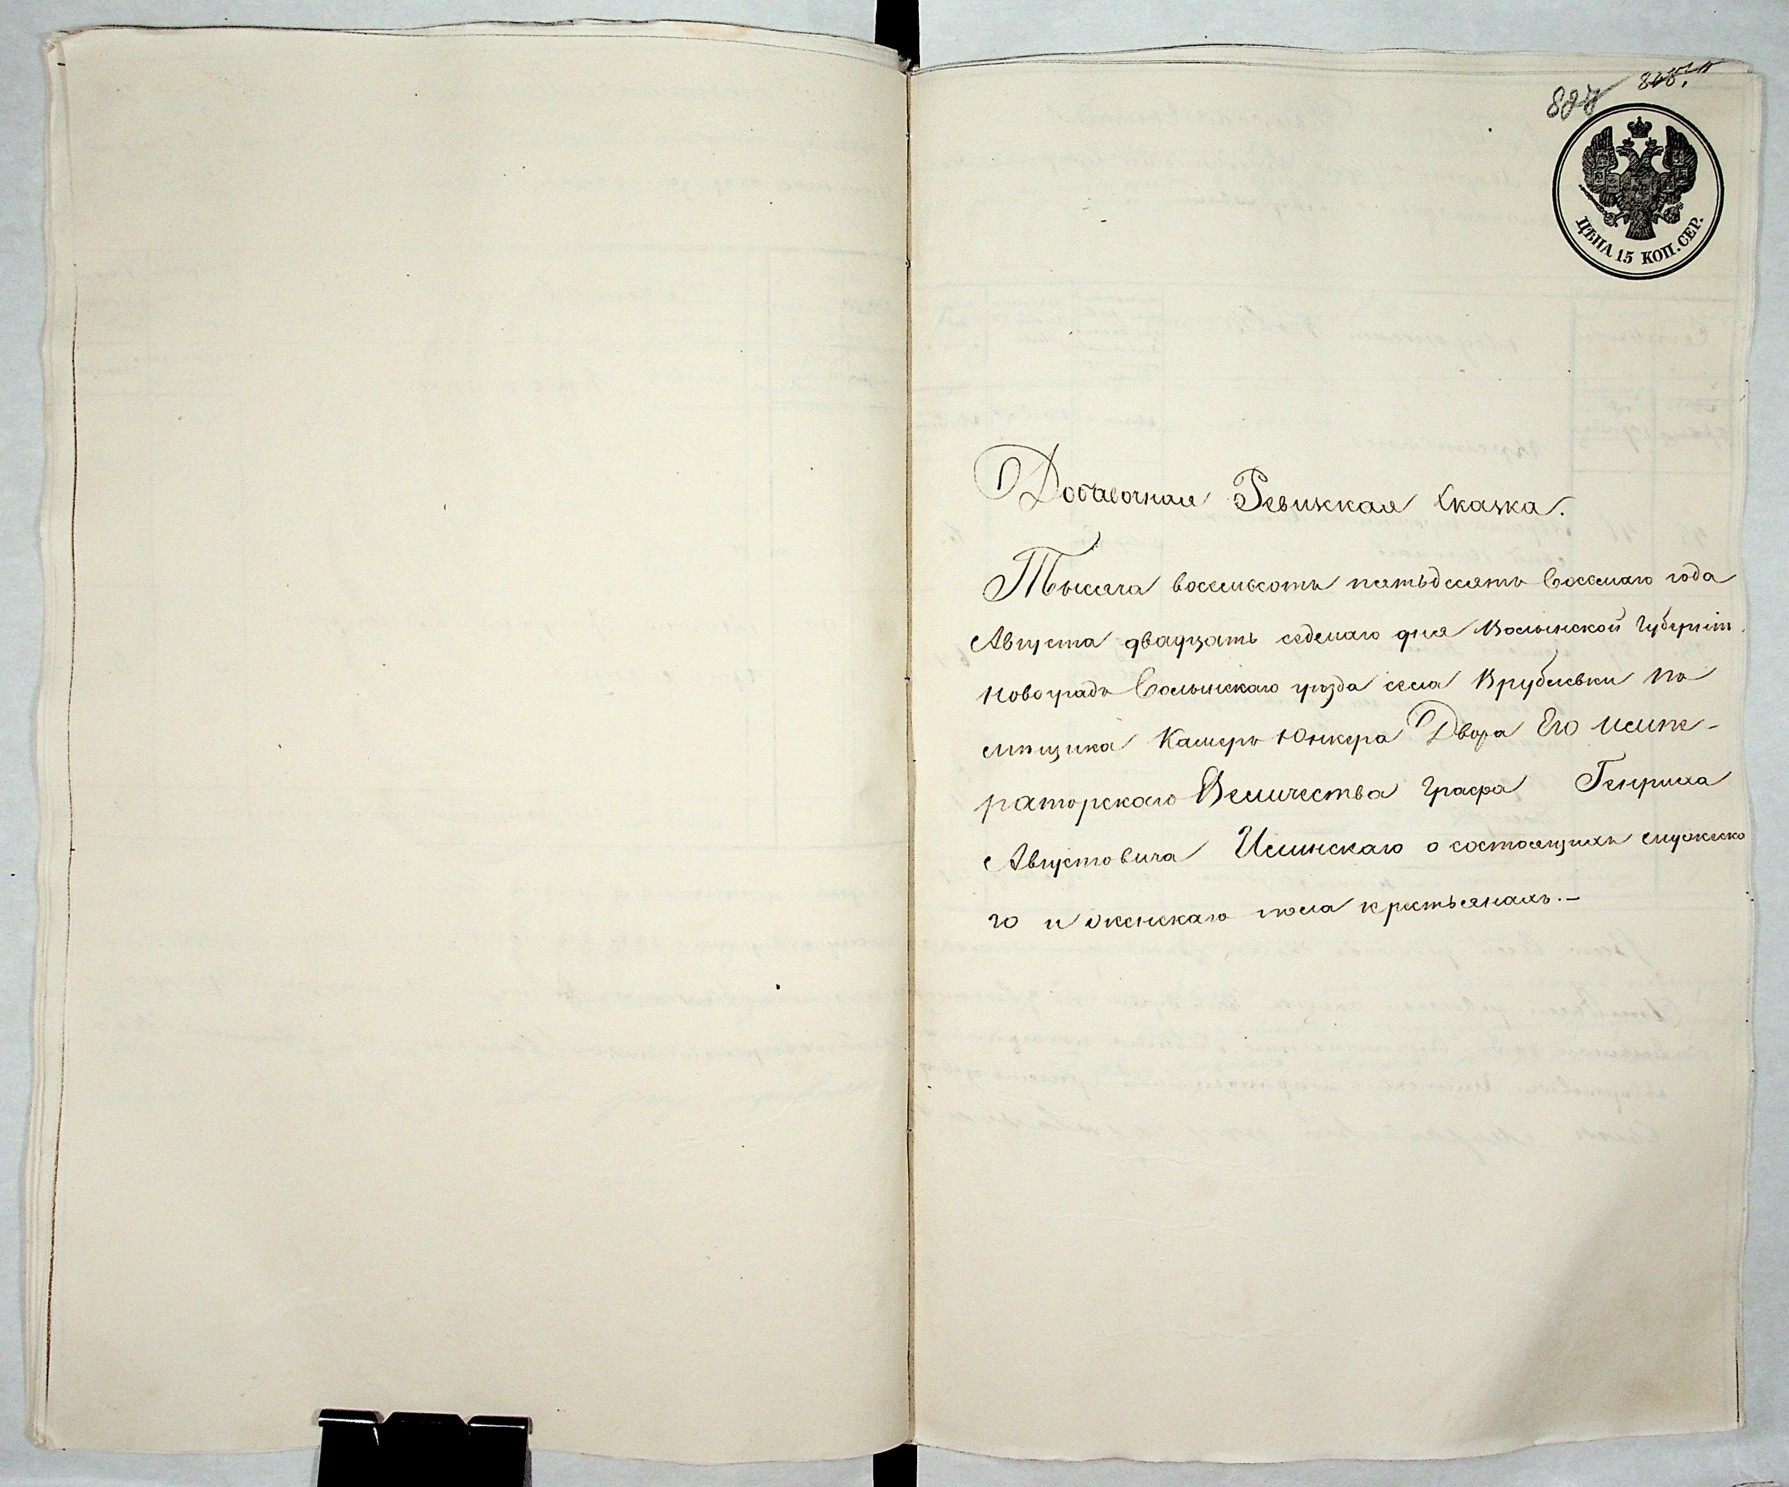 887
ЦѢНА 15 КОП. СЕР.
Добавочная Ревижкая Сказка.
Тысяча восемьсотъ пятьдесятъ восьмаго года
Августа двадцать седьмаго дня Волынской Губерніи
Новоградъ Волынскаго уѣзда села Врублевки По
мѣщика Камеръ Юнкера Двора Его Импе-
раторскаго Величества Графа Генриха
Августовича Илинскаго о состоящихъ мужеско
го и женскаго пола крестьянахъ.—